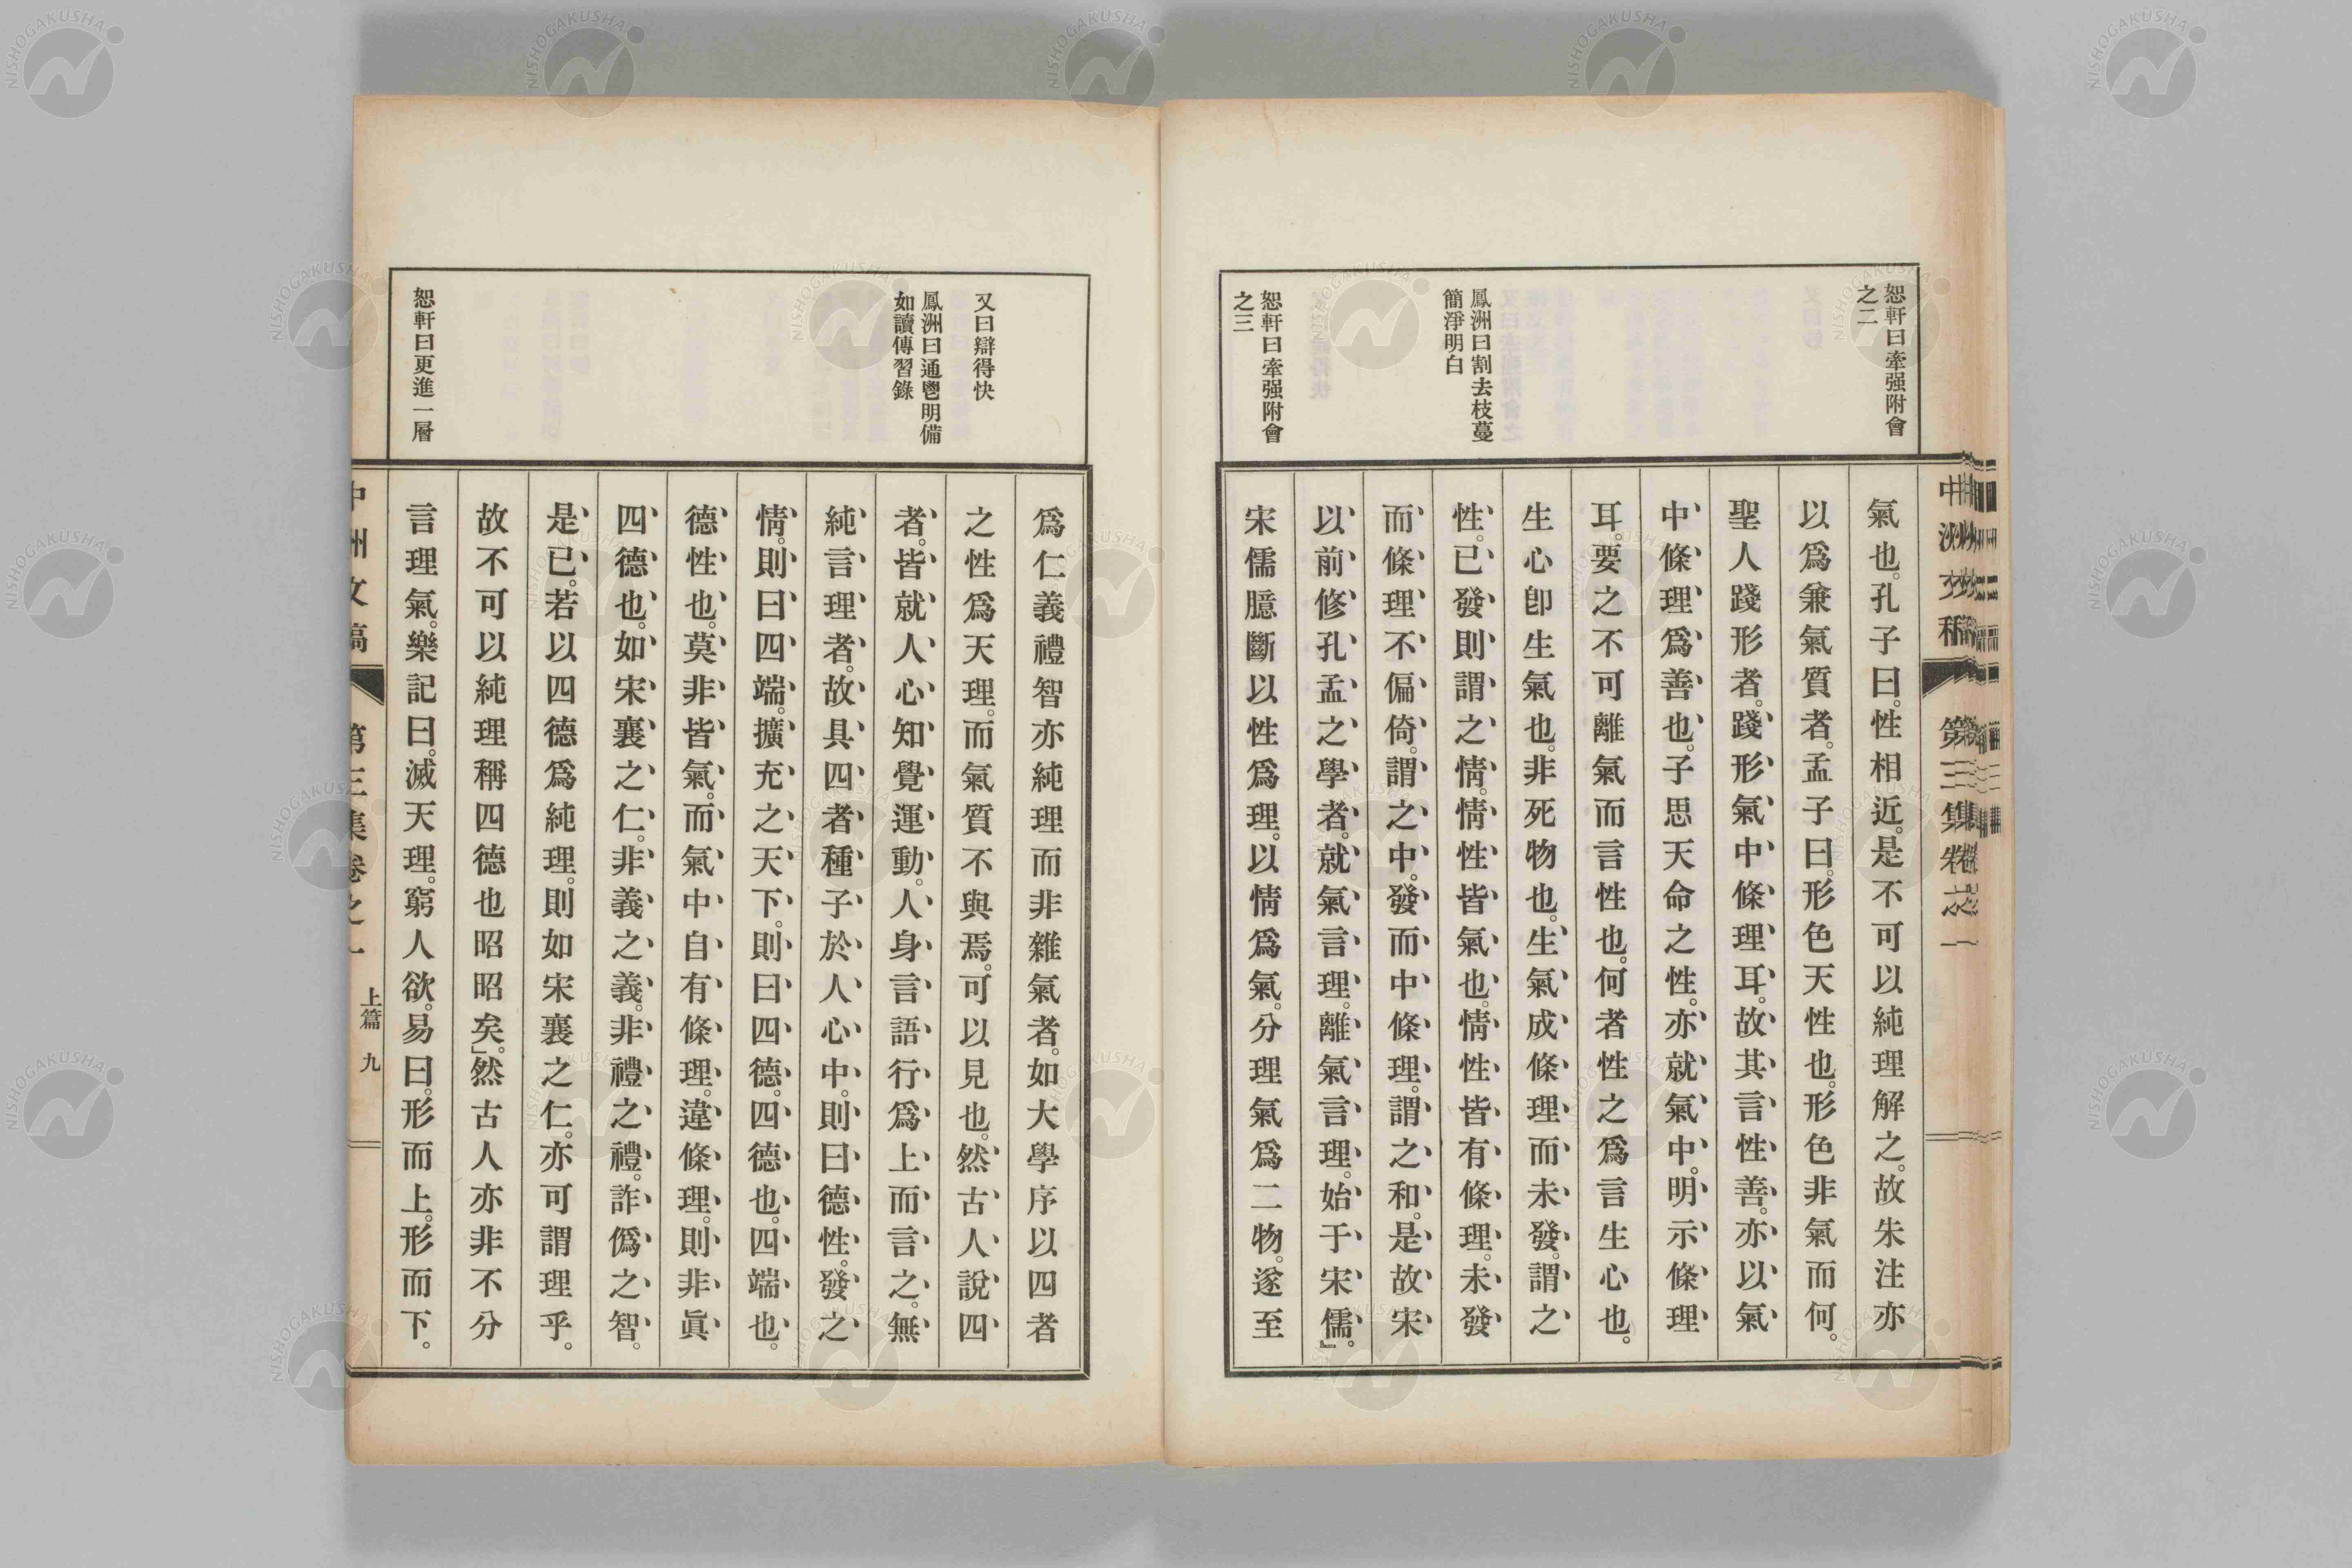 恕軒曰牽强附會
之二
鳳洲曰割去枝蔓
簡淨明白
恕軒曰牽强附會
之三
氣也。孔子曰。性相近。是不可以純理解之。故朱注亦
以爲兼氣質者。孟子曰。形色天性也。形色非氣而何。
聖人踐形者。踐形氣中條理耳。故其言性善。亦以氣
中條理爲善也。子思天命之性。亦就氣中。明示條理
耳。要之不可離氣而言性也。何者性之爲言生心也。
生心卽生氣也。非死物也。生氣成條理而未發。謂之
性。已發則謂之情。情性皆氣也。情性皆有條理。未發
而條理不偏倚。謂之中。發而中條理。謂之和。是故宋
以前修孔孟之學者。就氣言理。離氣言理。始于宋儒。」
宋儒臆斷以性爲理。以情爲氣。分理氣爲二物。遂至
中洲文稿 第三集卷之一
又曰辯得快
鳳洲曰通鬯明備
如讀傳習錄
恕軒曰更進一層
爲仁義禮智亦純理而非雜氣者。如大學序以四者
之性爲天理。而氣質不與焉。可以見也。然古人說四
者。皆就人心知覺運動。人身言語行爲上而言之。無
純言理者。故具四者種子於人心中。則曰德性。發之
情。則曰四端。擴充之天下。則曰四德。四德也。四端也。
德性也。莫非皆氣。而氣中自有條理。違條理。則非眞
四德也。如宋襄之仁。非義之義。非禮之禮。詐僞之智。
是已。若以四德爲純理。則如宋襄之仁。亦可謂理乎。
故不可以純理稱四德也昭昭矣。」然古人亦非不分
言理氣。樂記曰。滅天理。窮人欲。易曰。形而上。形而下。
中洲文稿 第三集卷之一 上篇 九
NISHOGAKUSHA